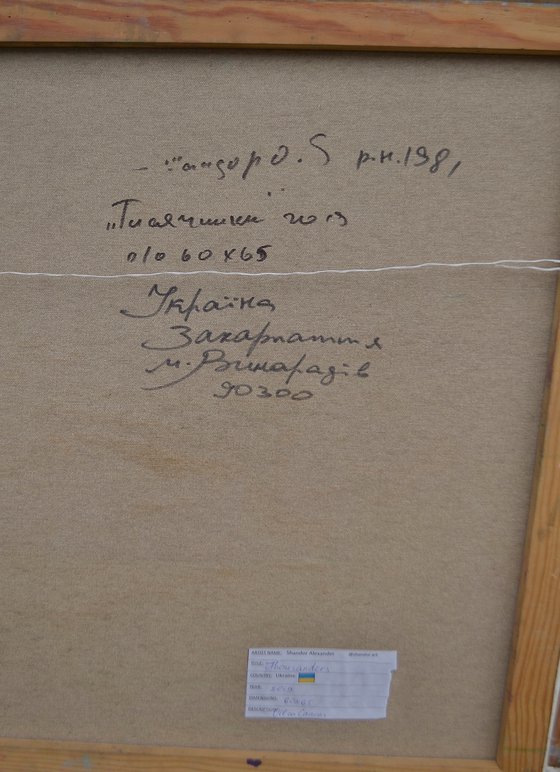 Шандор О. S р.н.198,
„Тисячники" 2013
п/о 60x65
Україна
Закарпаття
м. Виноградів
90300
ARTIST NAME: Shandor Alexander @shandor.art
TITLE: Thousanders
COUNTRY: Ukraine
YEAR:
DIMENSIONS: 60x65
DESCRIPTION: Oil on Canvas